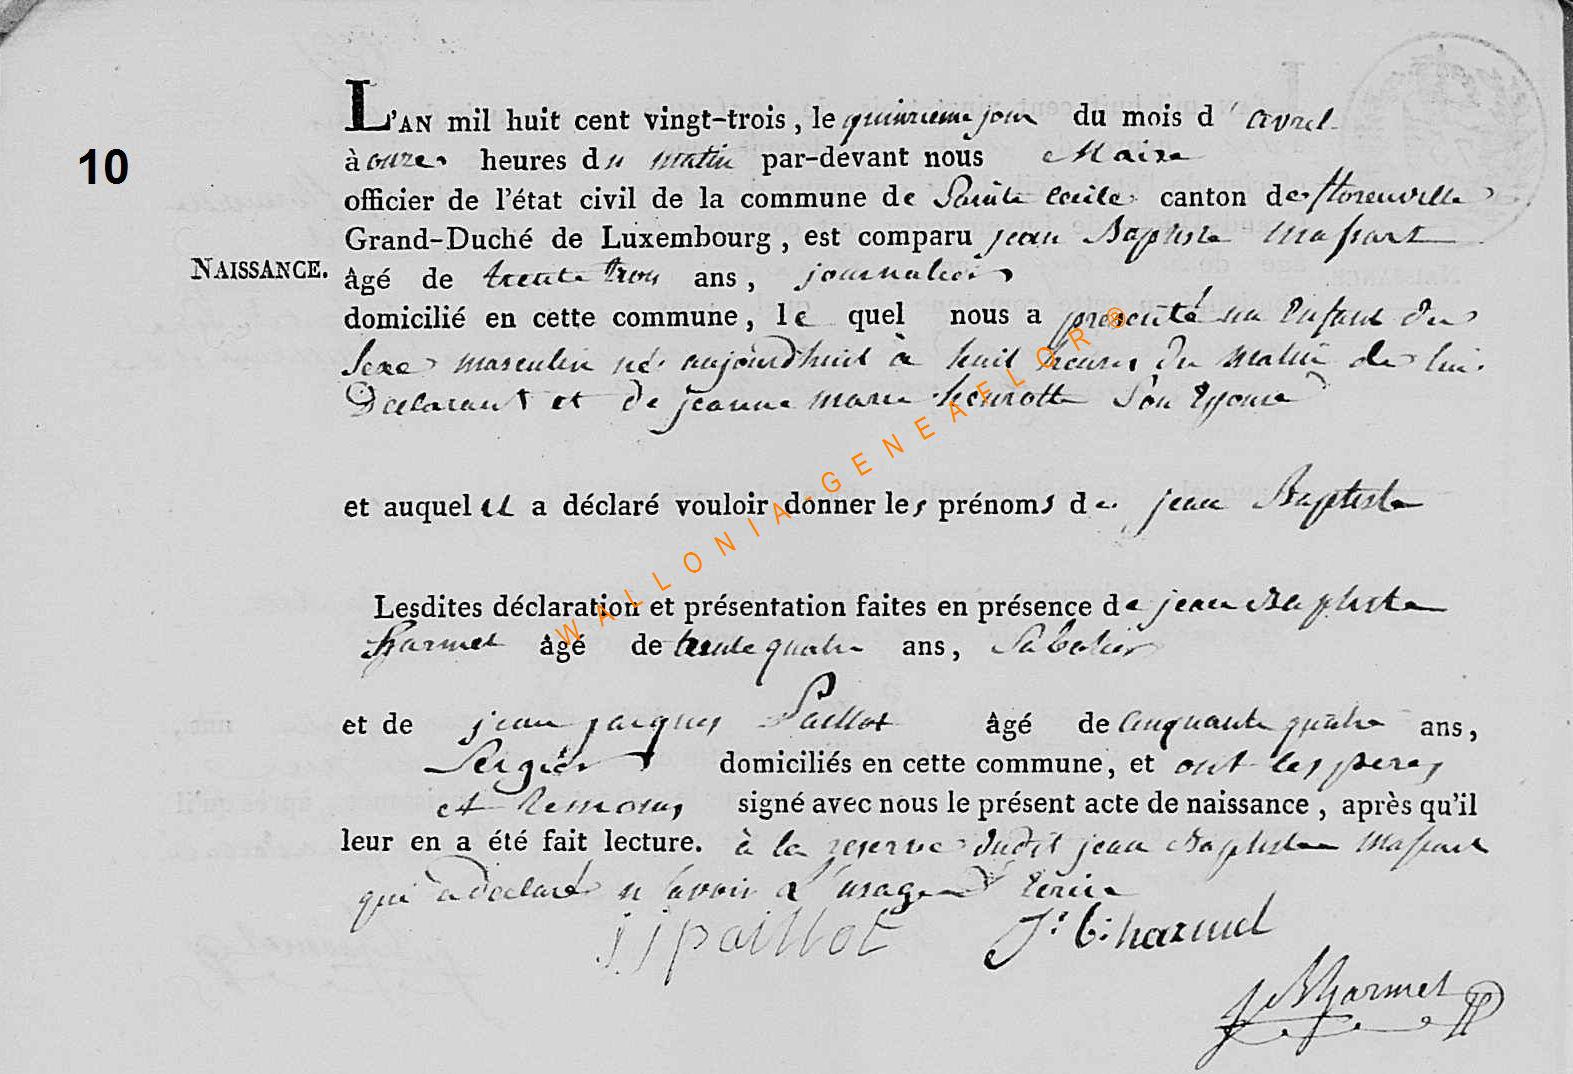 10
L'AN mil huit cent vingt-trois, le quinzieme jour du mois d'avril
à onze heures du matin par-devant nous Maire
officier de l'état civil de la commune de Sainte Cecile canton de florenville
Grand-Duché de Luxembourg, est comparu jean Baptiste Massart
NAISSANCE.
âgé de trente trois ans, journalier
domicilié en cette commune, le quel nous a présenté un Enfant du
Sexe masculin né aujourd'huit à huit heures du matin de lui
Declarant et de jeanne marie henrotte Son Epouse
et auquel il a déclaré vouloir donner les prénoms de jean Baptiste
Lesdites déclaration et présentation faites en présence de jean Baptiste
harmel âgé de trente quatre ans, Sabotier
et de jean jacques Paillot âgé de Cinquante quatre ans,
Sergier domiciliés en cette commune, et ont les peres
et temoins signé avec nous le présent acte de naissance, après qu'il
leur en a été fait lecture. à la reserve dudit jean Baptiste Massart
qui a declaré n'avoir l'usage d'Ecrire
jj paillot J: b: harmel
harmel
WALLONIA-GENEAFLOR®